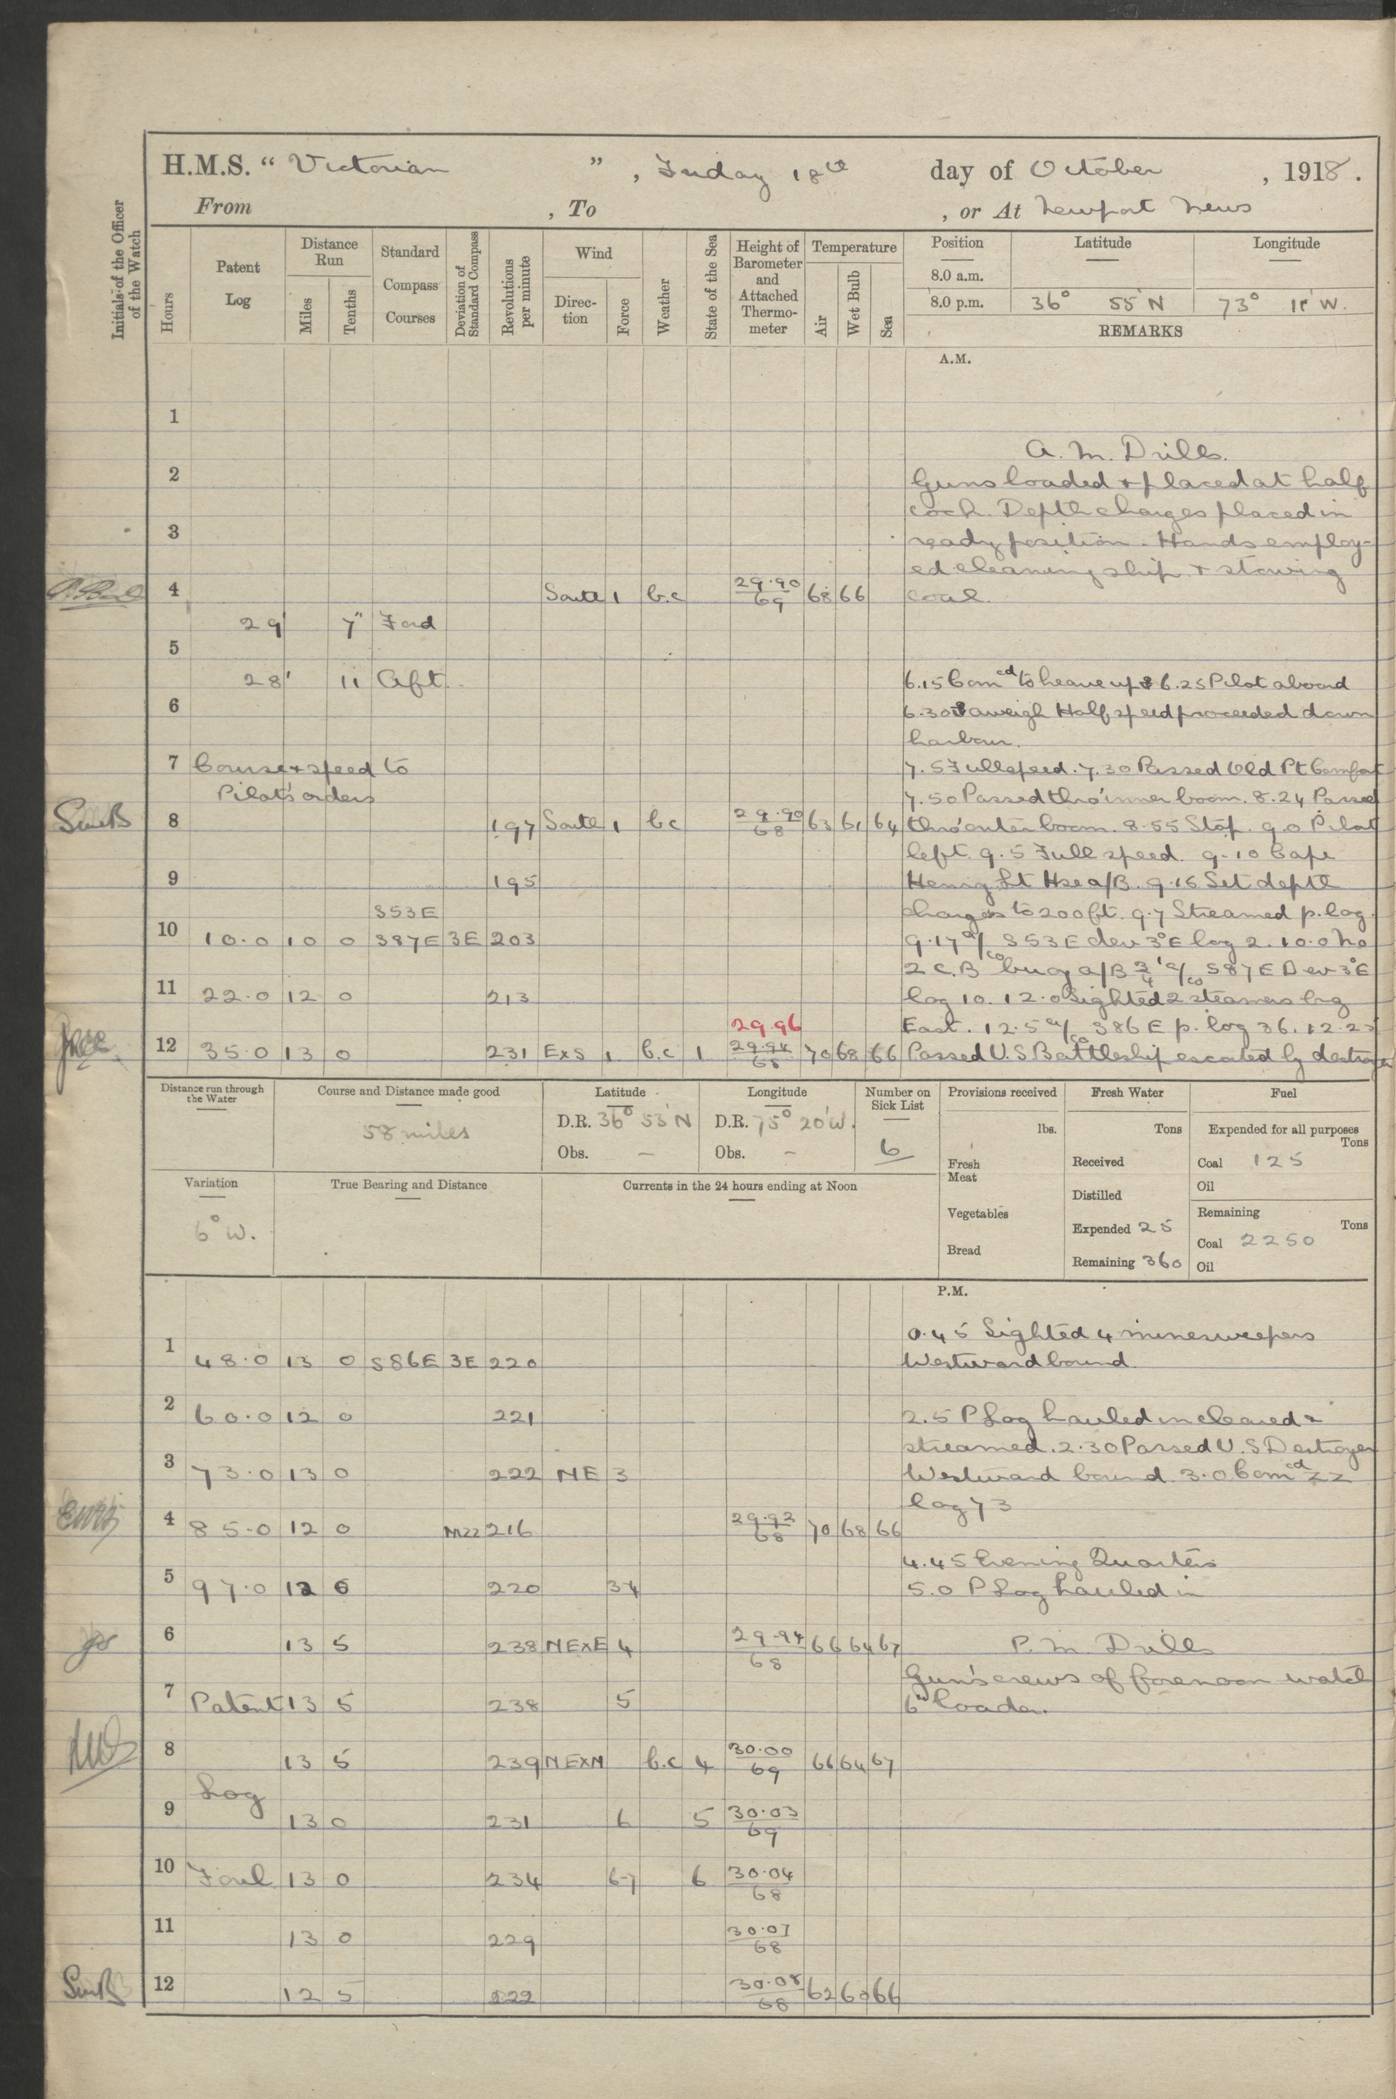 H.M.S. “ Victorian ” , Friday 18th day of October , 1918 .
From , To , or At Newport News
Initials of the Officer of the Watch
Hours
Patent Log
Distance Run
Miles
Tenths
Standard Compass Courses
Deviation of Standard Compass
Revolutions per minute
Wind
Direc-tion
Force
Weather
State of the Sea
Height of Barometer and Attached Thermo-meter
Temperature
Air
Wet Bulb
Sea
Position Latitude Longitude
8.0 a.m.
8.0 p.m. 36° 55' N 73° 11' W.
REMARKS
A.M.
1
A.M. Drills.
2
Guns loaded & placed at half
cock. Depth charges placed in
3
ready position. Hands employ-
ed cleaning ship & stowing
4 South 1 b.c 29.90/69 68 66 coal.
29' 7" Ford
5
28' 11 Aft.
6.15 Comced to heave up 6.25 Pilot aboard
6
6.30 aweigh Half speed proceeded down
harbour.
7 Course & speed to
7.5 Full speed. 7.30 Passed Old Pt Comfort
Pilots orders
7.50 Passed thro' inner boom. 8.24 Passed
8 197 South 1 bc 29.90/68 63 61 64 thro' outer boom. 8.55 Stop. 9.0 Pilot
left. 9.5 Full speed. 9.10 Cape
9 195 Henry Lt Hse a/B. 9.16 Set depth
S53E charges to 200 ft. 9.7 Streamed p. log.
10 10.0 10 0 S87E 3E 203 9.17 a/co S53E dev 3°E log 2. 10.0 No
2 C.B buoy a/B 3/4' a/co S87E Dev 3°E
11 22.0 12 0 213 log 10. 12.0 Sighted 2 steamers brg
29.96
East. 12.5 a/co S86E p. log 36. 12.25
12 35.0 13 0 231 ExS 1 b.c 1 29.94/68 70 68 66 Passed U.S Battleship escorted by destroyer
Distance run through the Water
Course and Distance made good
58 miles
Latitude
D.R. 36° 53' N
Obs. –
Longitude
D.R. 75° 20' W.
Obs. –
Number on Sick List
6
Provisions received
lbs.
Fresh Meat
Vegetables
Bread
Fresh Water
Tons
Received
Distilled
Expended 25
Remaining 360
Fuel
Expended for all purposes
Tons
Coal 125
Oil
Remaining
Tons
Coal 2250
Oil
Variation
6° W.
True Bearing and Distance
Currents in the 24 hours ending at Noon
P.M.
0.45 Sighted 4 minesweepers
1 48.0 13 0 S86E 3E 220 Westward bound.
2 60.0 12 0 221 2.5 P Log hauled in cleared &
streamed. 2.30 Passed U.S Destroyer
3 73.0 13 0 222 NE 3 Westward bound. 3.0 Comced ZZ
log 73
4 85.0 12 0 216 29.92/68 70 68 66
4.45 Evening Quarters
5 97.0 12 220 34 5.0 P Log hauled in
6 13 5 238 NExE 4 29.94/68 66 64 67 P.M. Drills
Gun's crews of forenoon watch
7 Patent 13 5 238 5 6" loader.
8 13 5 239 NExN b.c 4 30.00/69 66 64 67
Log
9 13 0 231 6 5 30.03/69
10 Foul 13 0 234 6-7 6 30.04/68
11 13 0 229 30.07/68
12 12 5 222 30.08/68 62 60 66